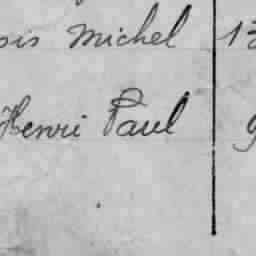 ois Michel 13
Henri Paul 9